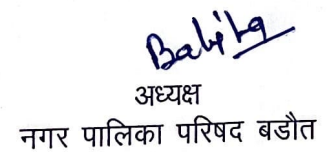 Babita
अध्यक्ष
नगर पालिका परिषद बडौत